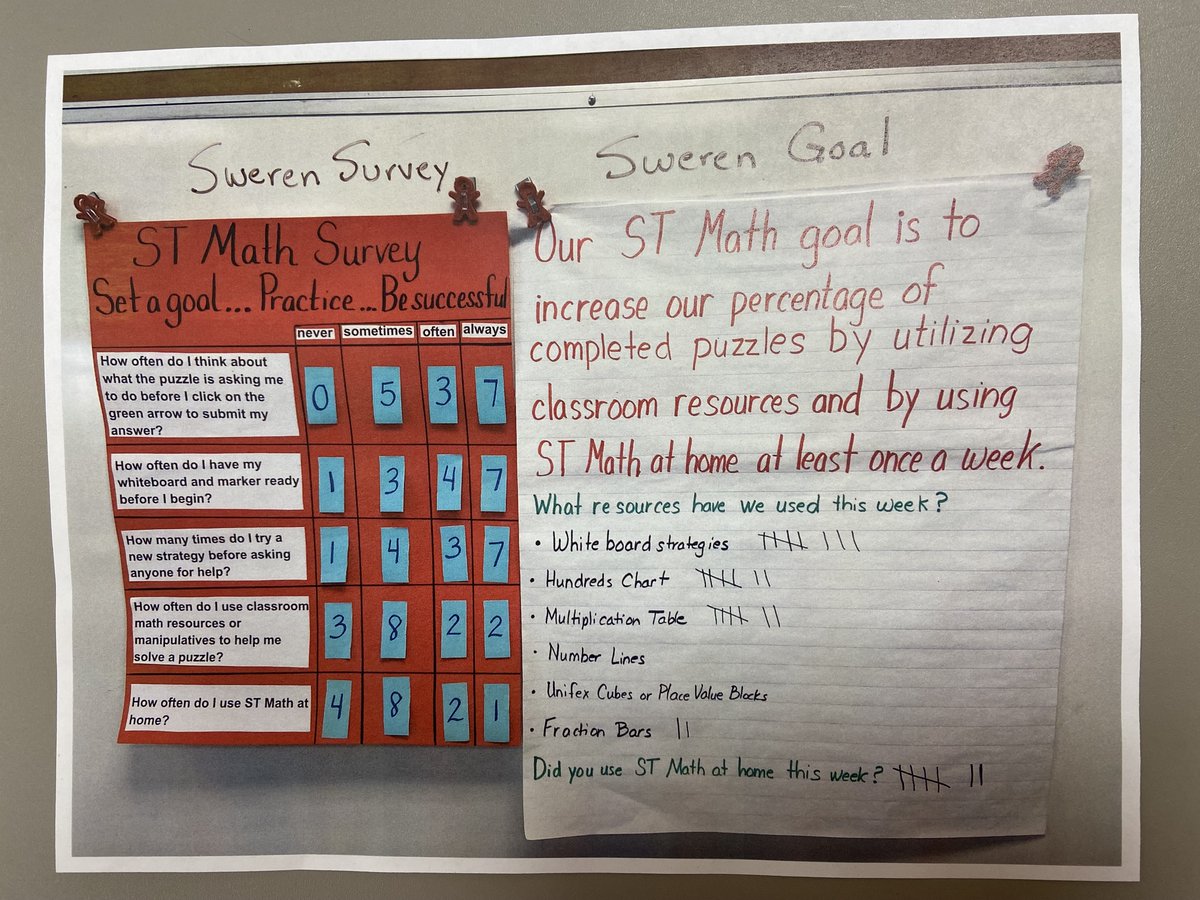 Sweren Survey
ST Math Survey
Set a goal... Practice... Be successful
never sometimes often always
How often do I think about
what the puzzle is asking me
to do before I click on the
green arrow to submit my
answer?
0 5 3 7
How often do I have my
whiteboard and marker ready
before I begin?
1 3 4 7
How many times do I try a
new strategy before asking
anyone for help?
1 4 3 7
How often do I use classroom
math resources or
manipulatives to help me
solve a puzzle?
3 8 2 2
How often do I use ST Math at
home?
4 8 2 1
Sweren Goal
Our ST Math goal is to
increase our percentage of
completed puzzles by utilizing
classroom resources and by using
ST Math at home at least once a week.
What resources have we used this week?
• White board strategies
• Hundreds Chart
• Multiplication Table
• Number Lines
• Unifex Cubes or Place Value Blocks
• Fraction Bars
Did you use ST Math at home this week?